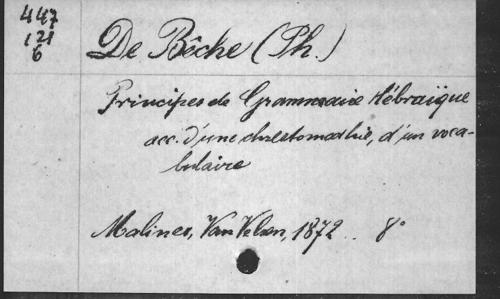 447
121
6
De Bêche (Ph.)
Principes de Grammaire Hébraïque
acc. d'une chrestomathie, d'un voca-
bulaire
Malines, Van Velsen, 1872.. 8°